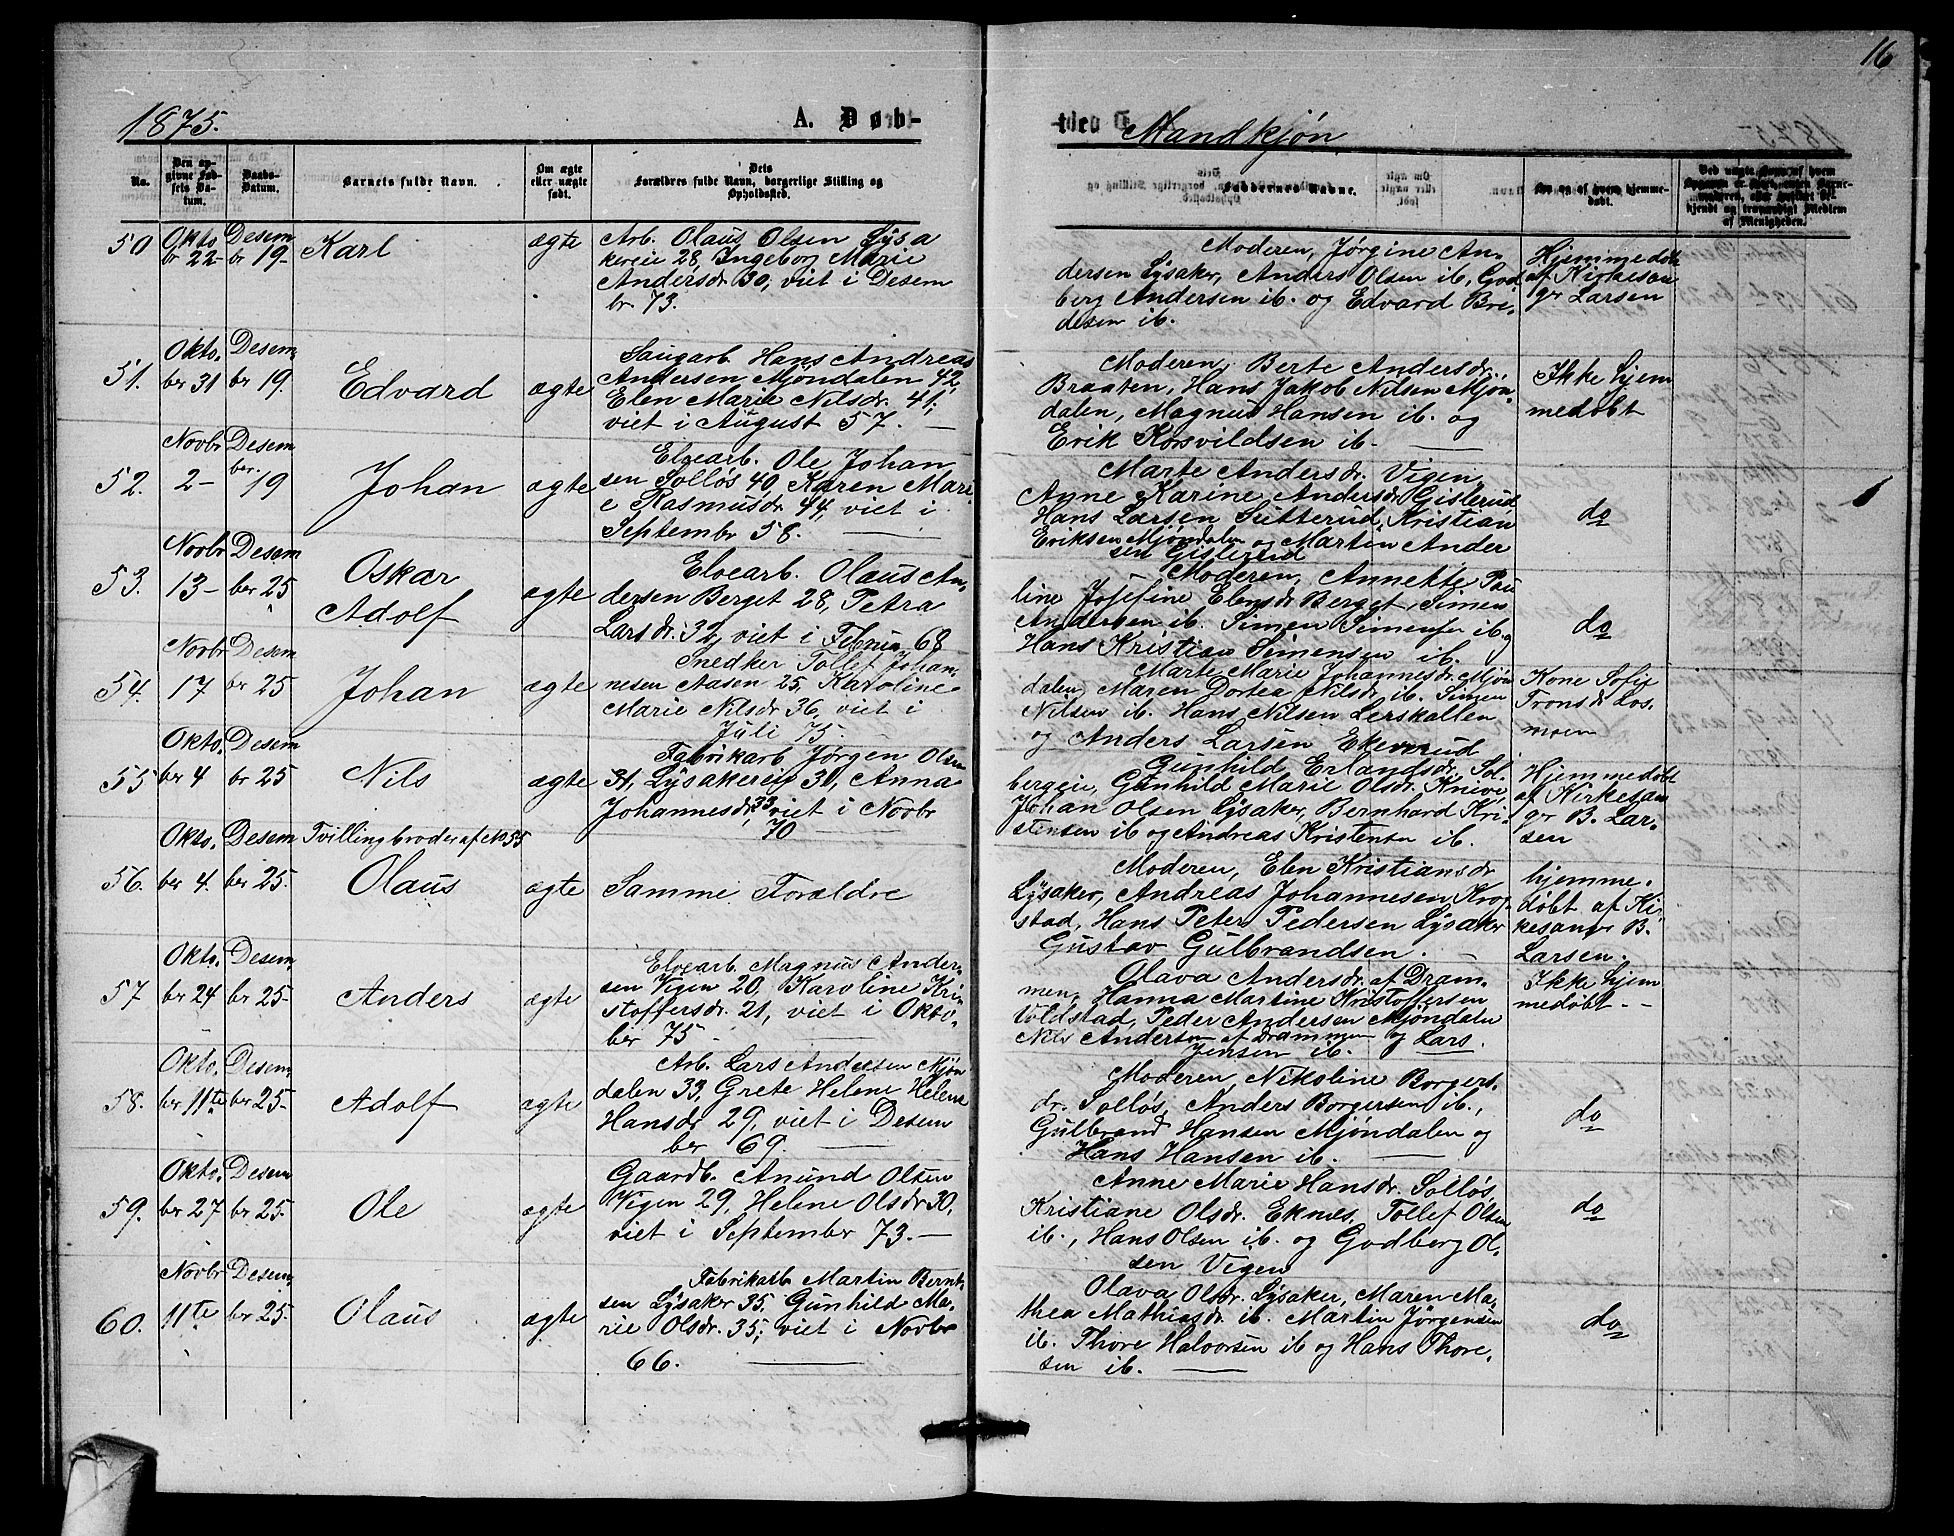 16
1875.
A. Døb-
te. Mandkjøn
No.
Den op-
givne Fød-
sels Da-
tum.
Daabs-
Datum.
Barnets fulde Navn.
Om ægte
eller uægte
født.
Dets
Forældres fulde Navn, borgerlige Stilling og
Opholdssted.
Faddernes Navne.
Om og af hvem hjemme-
døbt.
50
Okto
br 22-
Desem
br 19-
Karl
ægte
Arb. Olaus Olsen Lysa
kereie 28, Ingeborg Marie
Andersdr 30, viet i Desem
br 73.
Moderen, Jørgine An-
dersen Lysaker, Anders Olsen ib, God
berg Andersen ib. og Edvard Bri-
desen ib.
Hjemmedøbt
af Kirkesan
gr Larsen
51.
Okto.
ber 31
Desem
br 19.
Edvard
ægte
Saugarb. Hans Andreas
Andersen Mjøndalen 42,
Elen Marie Nilsdr. 41,
viet i August 57. —
Moderen, Berte Andersdr.
Braaten, Hans Jakob Nilsen Mjøn-
dalen, Magnus Hansen ib. og
Erik Korsvildsen ib. —
Ikke hjem
medøbt
52.
Novbr
2-
Desem
ber. 19
Johan
ægte
Elvearb. Ole Johan
sen Solløs 40 Karen Mari
e Rasmusdr 44, viet i
Septembr 58. —
Marte Andersdr. Vigen,
Anne Karine Andersdr Gislerud
Hans Larsen Sutterud, Kristian
Eriksen Mjøndalen og Martin Ander
sen Gislerud
do
53.
Novbr
13-
Desem
ber 25
Oskar
Adolf
ægte
Elvearb. Olaus An-
dersen Berget 28, Petra
Larsdr. 32, viet i Februa 68
Moderen, Annette Pau
line Josefine Elensdr Berget, Simen
Andersen ib. Simen Simensen ib. og
Hans Kristian Simensen ib.
do
54.
Novbr
17
Desem
br 25
Johan
ægte
Snedker Tollef Johan-
nesen Aasen 25, Karoline
Marie Nilsdr 36, viet i
Juli 75.
Marte Marie Johannesdr. Mjøn
dalen, Maren Dortea Nilsdr. ib. Simen
Nilsen ib. Hans Nilsen Lerskallen
og Anders Larsen Ekeverud
Kone Sofie
Tronsdr Los-
moen
55
Okto.
ber 4
Desem
br 25
Nils
ægte
Fabrikarb Jørgen Olsen
31, Lysakereie 31, Anna
Johannesdr, 33 viet i Novbr
70 —
Gunhild Erlandsdr. Sol-
bergeie, Gunhild Marie Olsdr. Knive
Johan Olsen Lysaker, Bernhard Kri-
stensen ib og Andreas Kristensen ib.
Hjemmedøbt
af Kirkesan
gr B. Lar-
sen
56.
Okto.
ber 4.
Desem
ber 25.
Tvillingbroder af No 55
Olaus
ægte
Samme Forældre
Moderen, Elen Kristiansdr
Lysaker, Andreas Johannesen Krog
stad, Hans Peter Pedersen Lysaker
Gustav Gulbrandsen. —
hjemme-
døbt af Kir
kesangr B.
Larsen.
57
Okto.
ber 24
Desem,
br 25-
Anders
ægte
Elvearb. Magnus Ander-
sen Vigen 20, Karoline Kri-
stoffersdr. 21, viet i Okto-
ber 75 —
Olava Andersdr. af Dram-
men, Hanna Martine Kristoffersen
Voldstad, Peder Andersen Mjøndalen
Nils Andersen af Drammen og Lars.
Jensen ib.
Ikke hjem
medøbt. -
58.
Okto.
ber 11te
Desem
ber 25-
Adolf
ægte
Arb. Lars Andersen Mjøn
dalen 33, Grete Helene Helene
Hansdr 29, viet i Desem
ber 69. —
Moderen, Nikoline Borgers.
dr. Solløs, Anders Borgersen ib.,
Gulbrand Hansen Mjøndalen og
Hans Hansen ib. —
do
59.
Okto.
ber 27
Desem
br 25.
Ole
ægte
Gaardb. Anund Olsen
Vigen 29, Helene Olsdr 30,
viet i September 73. —
Anne Marie Hansdr. Solløs,
Kristiane Olsdr. Eknes, Tollef Olsen
ib., Hans Olsen ib. og Godberg Ol-
sen Vigen
do
60.
Novbr
11te
Desem,
ber 25.
Olaus
ægte
Fabrikarb Martin Bernt-
sen Lysaker 35, Gunhild Ma-
rie Olsdr. 35, viet i Novbr
66. —
Olava Olsdr. Lysaker, Maren Ma-
thea Mathiasdr ib. Martin Jørgensen
ib. Thore Halvorsen ib og Hans Thore-
sen ib. —
do